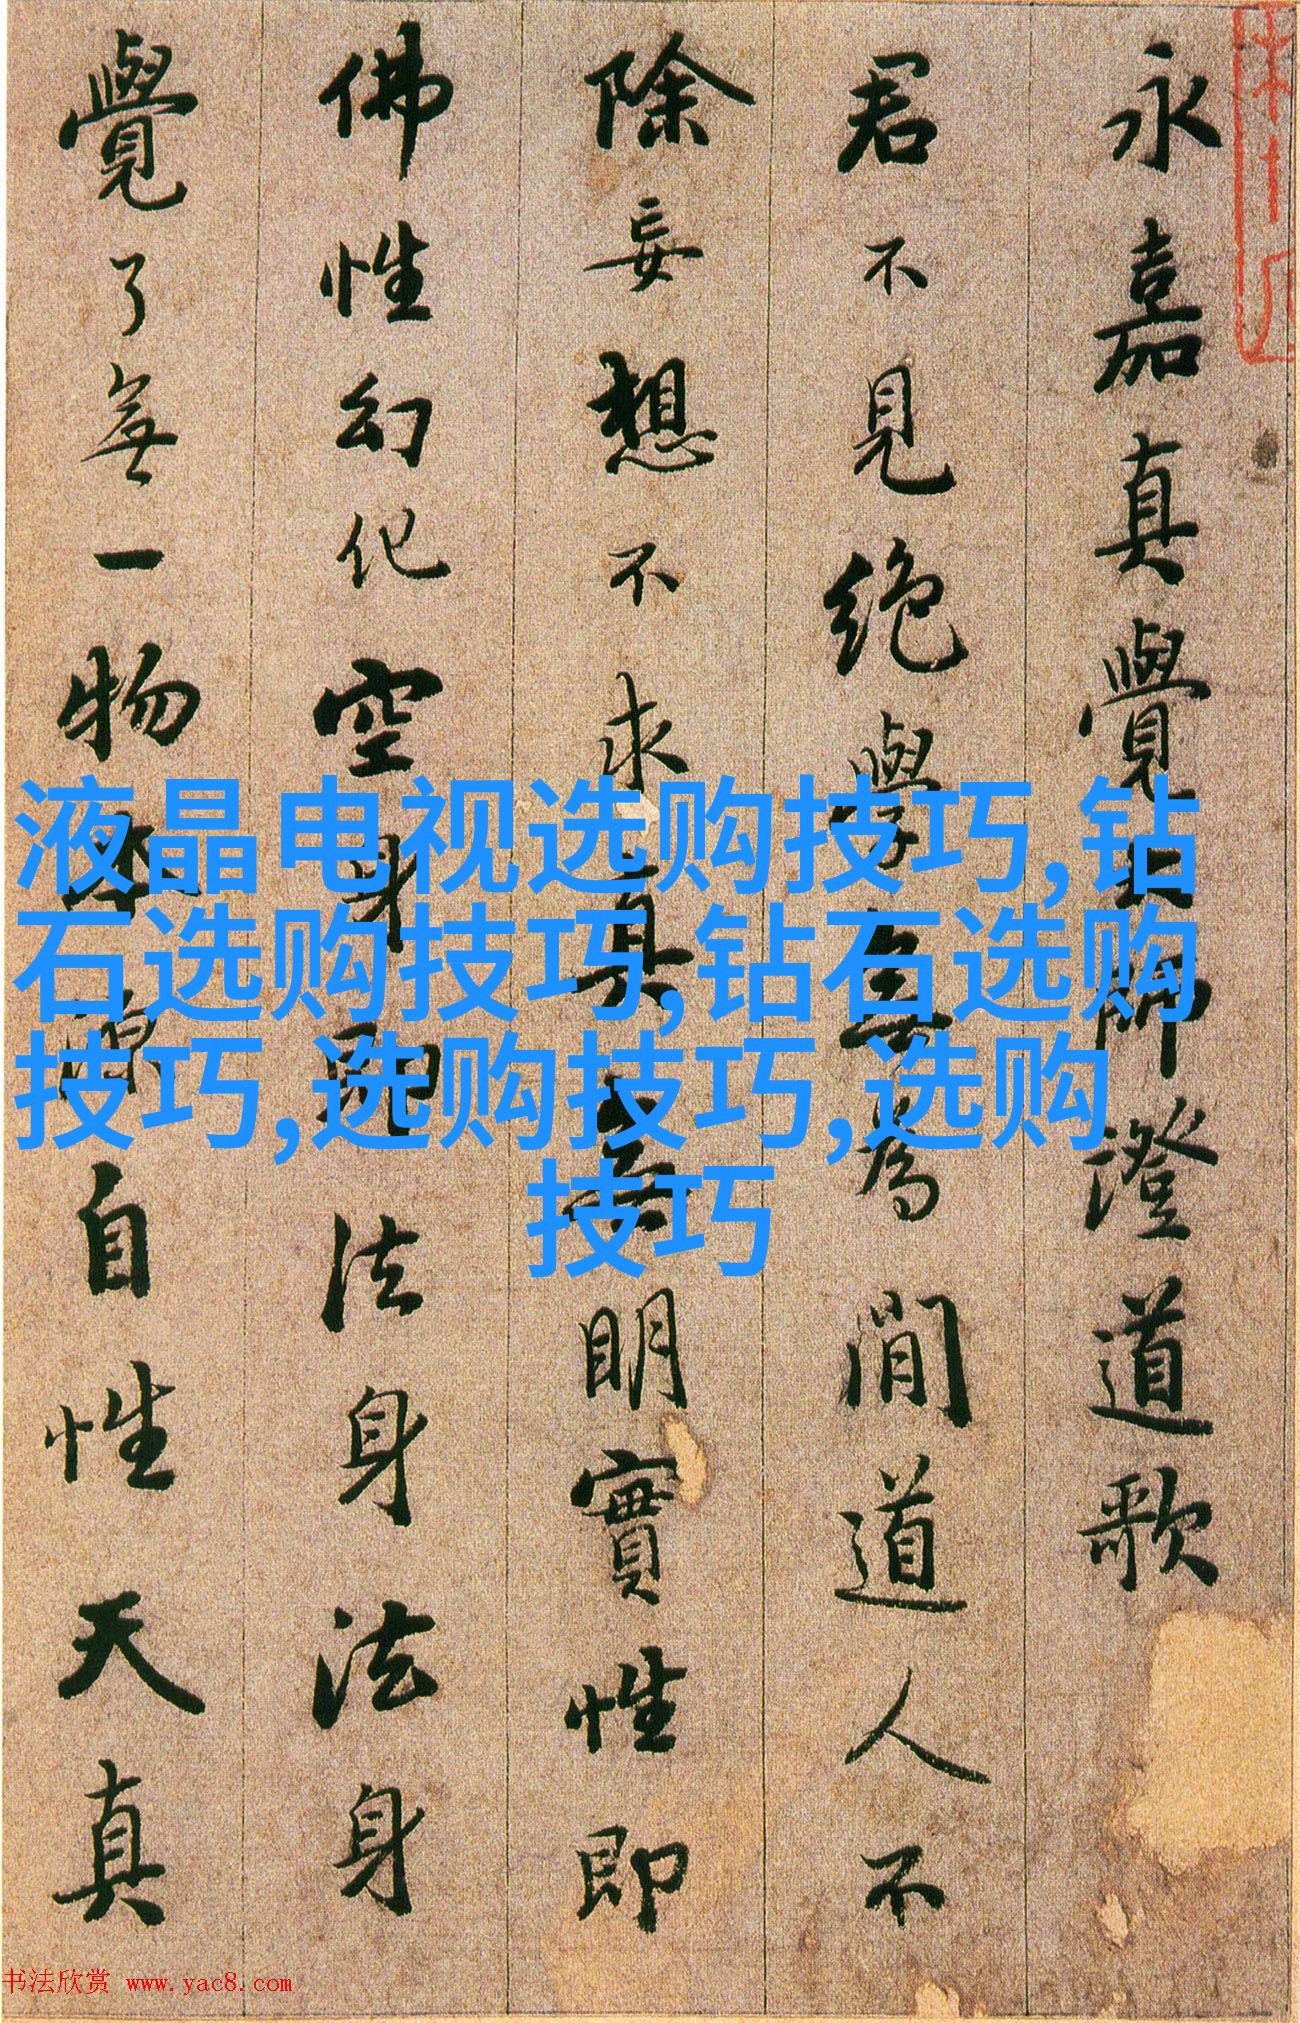 永嘉真覺大師澄道歌
君不見絶學無為閒道人不
除妄想不求真無明實性即
佛性幻化空身即法身法身
覺了無一物本源自性天真
液晶电视选购技巧,钻
石选购技巧,钻石选购
技巧,选购技巧,选购
技巧
书法欣赏 www.yac8.com